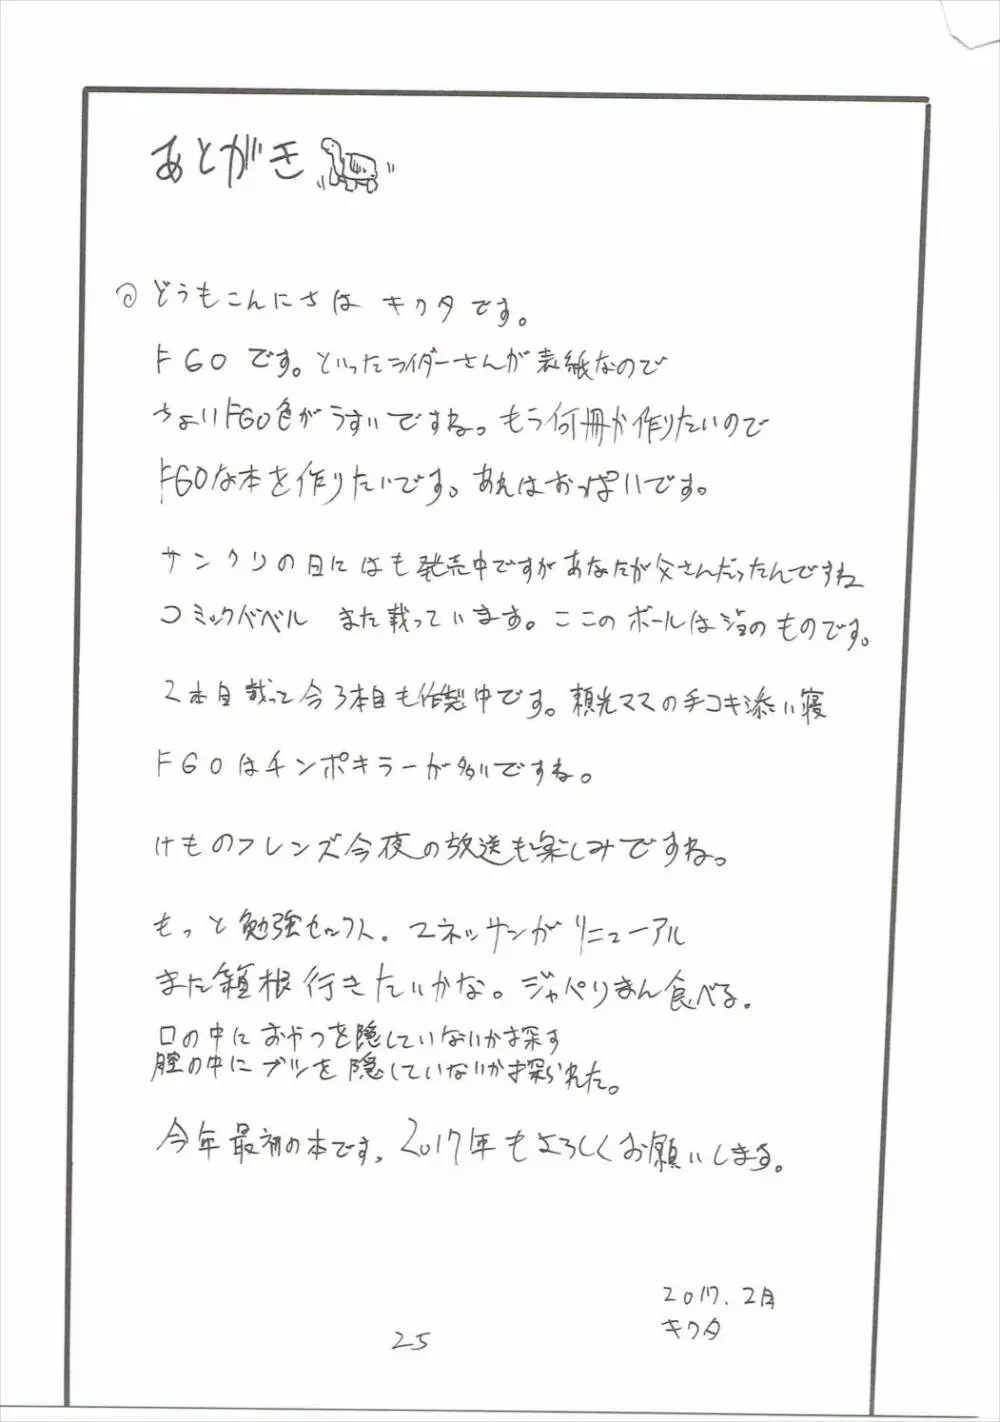 あとがき
どうもこんにちは キクタです。
FGOです。といったライダーさんが表紙なので
ちょいFGO色がうすいですね。もう何冊か作りたいので
FGOな本を作りたいです。あれはおっぱいです。
サンクリの日にはも発売中ですがあなたが父さんだったんですね
コミックバベル また載っています。ここのボールはジョのものです。
2本目載って今3本目も作製中です。頼光ママの手コキ添い寝
FGOはチンポキラーが多いですね。
けものフレンズ今夜の放送も楽しみですね。
もっと勉強せにゃ。ユネッサンがリニューアル
また箱根行きたいかな。ジャパリまん食べる。
口の中におやつを隠していないか探す
膣の中にブツを隠していないか探られた。
今年最初の本です。2017年もよろしくお願いします。
2017.2月
キクタ
25